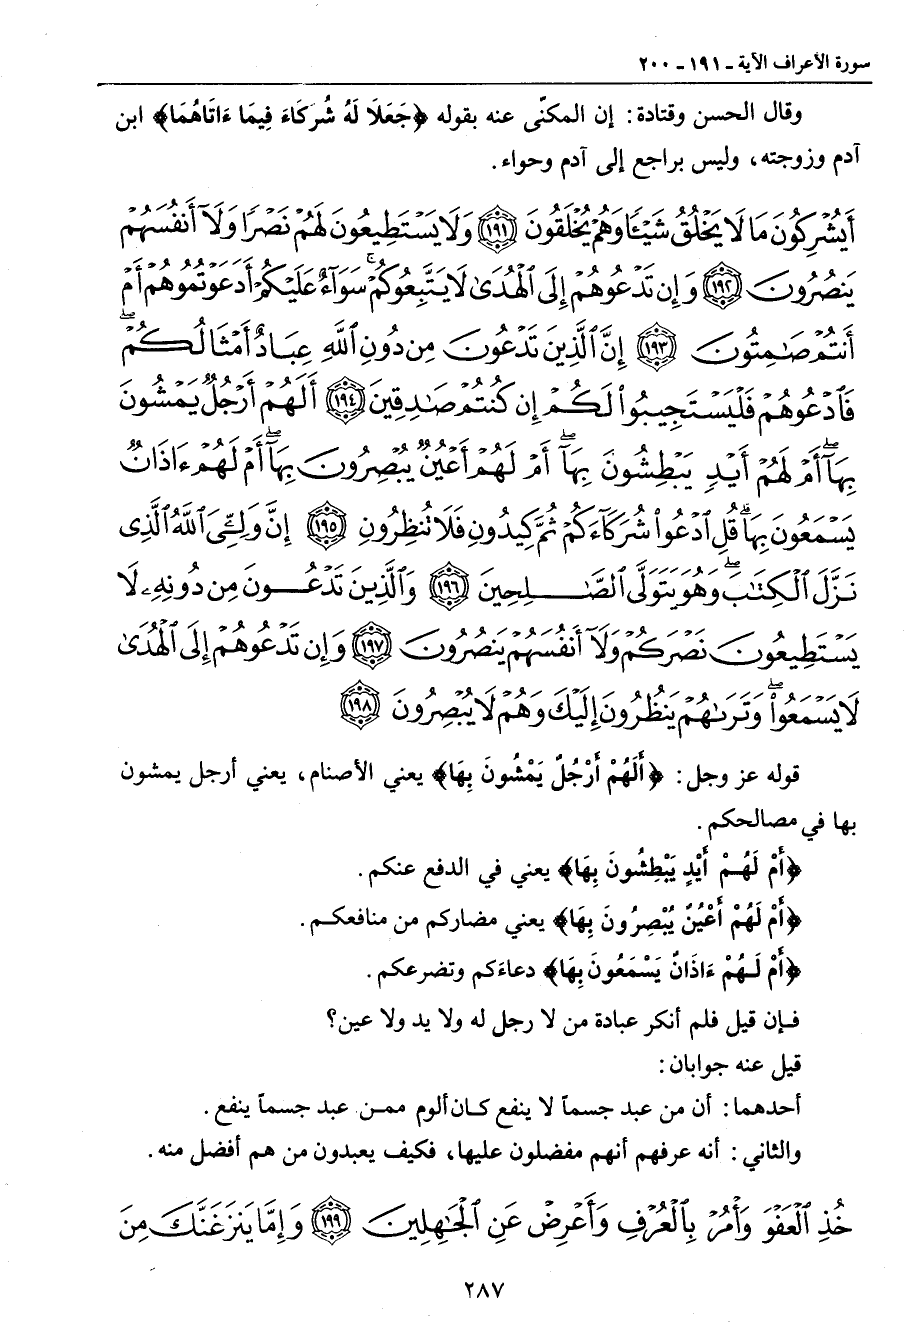 سورة الأعراف الآية ـ ١٩١ ـ ٢٠٠
وقال الحسن وقتادة: إن المكنّى عنه بقوله ﴿جَعَلَا لَهُ شُرَكَاءَ فِيمَا ءَاتَاهُمَا﴾ ابن
آدم وزوجته، وليس براجع إلى آدم وحواء.
أَيُشْرِكُونَ مَا لَا يَخْلُقُ شَيْئًا وَهُمْ يُخْلَقُونَ ﴿١٩١﴾ وَلَا يَسْتَطِيعُونَ لَهُمْ نَصْرًا وَلَآ أَنفُسَهُمْ
يَنصُرُونَ ﴿١٩٢﴾ وَإِن تَدْعُوهُمْ إِلَى ٱلْهُدَىٰ لَا يَتَّبِعُوكُمْ ۚ سَوَآءٌ عَلَيْكُمْ أَدَعَوْتُمُوهُمْ أَمْ
أَنتُمْ صَٰمِتُونَ ﴿١٩٣﴾ إِنَّ ٱلَّذِينَ تَدْعُونَ مِن دُونِ ٱللَّهِ عِبَادٌ أَمْثَالُكُمْ ۖ
فَٱدْعُوهُمْ فَلْيَسْتَجِيبُوا۟ لَكُمْ إِن كُنتُمْ صَٰدِقِينَ ﴿١٩٤﴾ أَلَهُمْ أَرْجُلٌ يَمْشُونَ
بِهَآ ۖ أَمْ لَهُمْ أَيْدٍ يَبْطِشُونَ بِهَآ ۖ أَمْ لَهُمْ أَعْيُنٌ يُبْصِرُونَ بِهَآ ۖ أَمْ لَهُمْ ءَاذَانٌ
يَسْمَعُونَ بِهَا ۗ قُلِ ٱدْعُوا۟ شُرَكَآءَكُمْ ثُمَّ كِيدُونِ فَلَا تُنظِرُونِ ﴿١٩٥﴾ إِنَّ وَلِـِّۧىَ ٱللَّهُ ٱلَّذِى
نَزَّلَ ٱلْكِتَٰبَ ۖ وَهُوَ يَتَوَلَّى ٱلصَّٰلِحِينَ ﴿١٩٦﴾ وَٱلَّذِينَ تَدْعُونَ مِن دُونِهِۦ لَا
يَسْتَطِيعُونَ نَصْرَكُمْ وَلَآ أَنفُسَهُمْ يَنصُرُونَ ﴿١٩٧﴾ وَإِن تَدْعُوهُمْ إِلَى ٱلْهُدَىٰ
لَا يَسْمَعُوا۟ ۖ وَتَرَىٰهُمْ يَنظُرُونَ إِلَيْكَ وَهُمْ لَا يُبْصِرُونَ ﴿١٩٨﴾
قوله عز وجل: ﴿أَلَهُمْ أَرْجُلٌ يَمْشُونَ بِهَا﴾ يعني الأصنام، يعني أرجل يمشون
بها في مصالحكم.
﴿أَمْ لَهُمْ أَيْدٍ يَبْطِشُونَ بِهَا﴾ يعني في الدفع عنكم.
﴿أَمْ لَهُمْ أَعْيُنٌ يُبْصِرُونَ بِهَا﴾ يعني مضاركم من منافعكم.
﴿أَمْ لَهُمْ ءَاذَانٌ يَسْمَعُونَ بِهَا﴾ دعاءَكم وتضرعكم.
فإن قيل فلم أنكر عبادة من لا رجل له ولا يد ولا عين؟
قيل عنه جوابان:
أحدهما: أن من عبد جسماً لا ينفع كان ألوم ممن عبد جسماً ينفع.
والثاني: أنه عرفهم أنهم مفضلون عليها، فكيف يعبدون من هم أفضل منه.
خُذِ ٱلْعَفْوَ وَأْمُرْ بِٱلْعُرْفِ وَأَعْرِضْ عَنِ ٱلْجَٰهِلِينَ ﴿١٩٩﴾ وَإِمَّا يَنزَغَنَّكَ مِنَ
٢٨٧